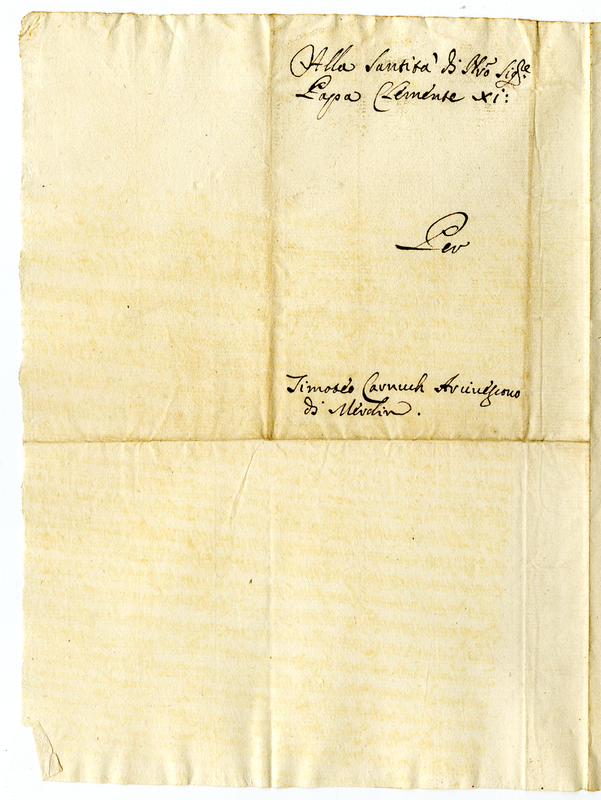 Alla Santità di Nrō Sig.re
Papa Clemente XI:
Per
Timoteo Carnuch Arcivescovo
di Merdin.